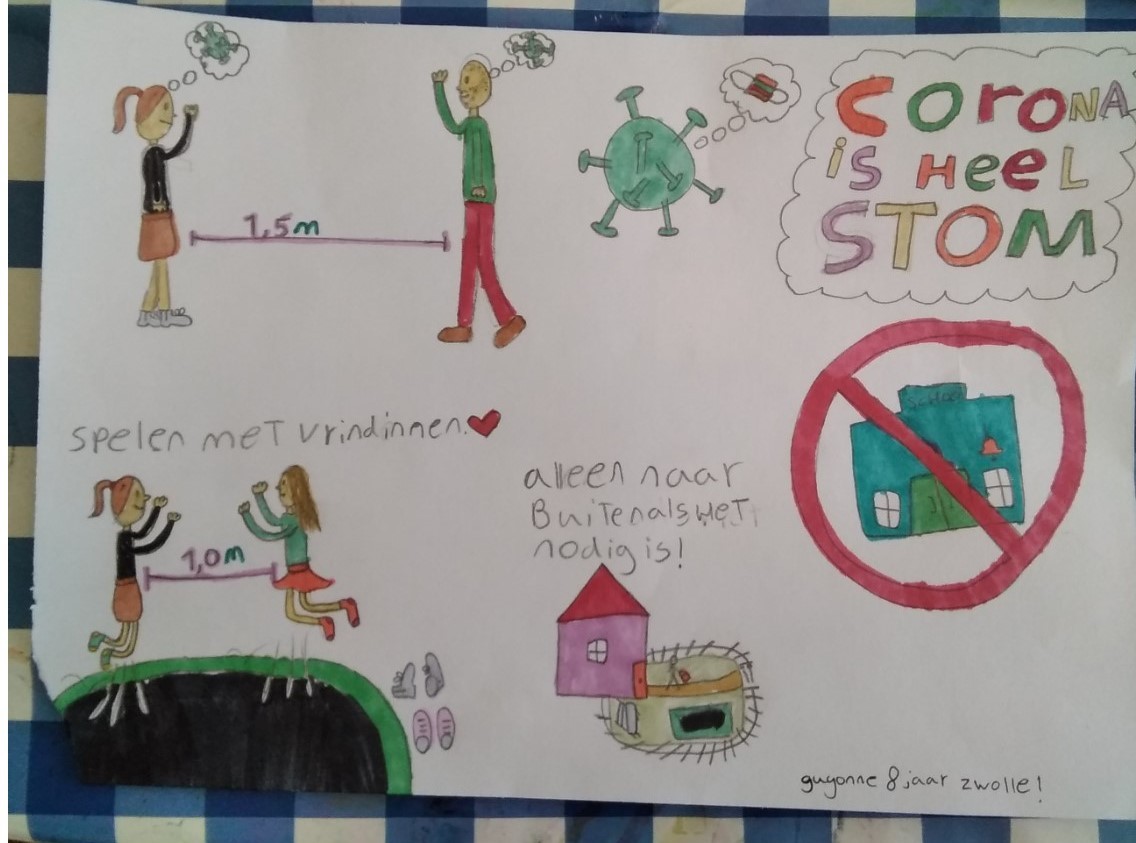 CoroNA
is Heel
STOM
1,5m
spelen meT vrindinnen.
1,0m
alleen naar
BuiTen als HeT
nodig is!
ScHool
guyonne 8 jaar zwolle!